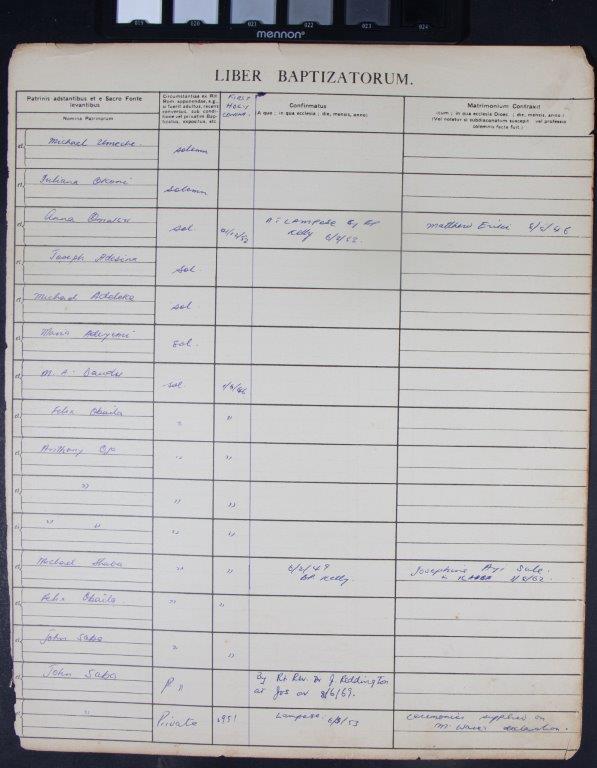 019 020 021 022 023 024
mennon
LIBER BAPTIZATORUM.
Patrinis adstantibus et e Sacro Fonte
levantibus
Nomina Patrinorum
Circumstantiae ex Rit.
Rom. apponendae, e.g.,
si fuerit adultus, recens
conversus, sub condi-
tione vel privatim Bap-
tizatus, expositus, etc.
FIRST
HOLY
COMM.
Confirmatus
(A quo ; in qua ecclesia ; die, mensis, anno)
Matrimonium Contraxit
(cum ; in qua ecclesia Dioec. ; die, mensis, anno)
(Vel notatur si subdiaconatum suscepit vel professio
solemnis facta fuit.)
et Michael
solemn
et Juliana Okoni
solemn
et Anna
sol.
A: LAMPESE By BP
Kelly
Matthew
et Joseph Adesina
sol.
et Michael Adeleke
sol.
et Maria Adeyemi
Sol.
et M. A. Dauda
sol.
et Felix Obaila
"
"
et Anthony Ojo
"
"
et "
"
"
et " "
"
"
et Michael Shaba
"
"
6/2/49
BP. Kelly.
Josephine Ayi Sule.
et Felix Obaila
"
"
et John Saba
"
"
et John Saba
P "
By Rt. Rev. Dr J Reddington
at Jos on 8/6/69.
et "
Private
1951
Lampese
ceremonies supplied on
declaration.